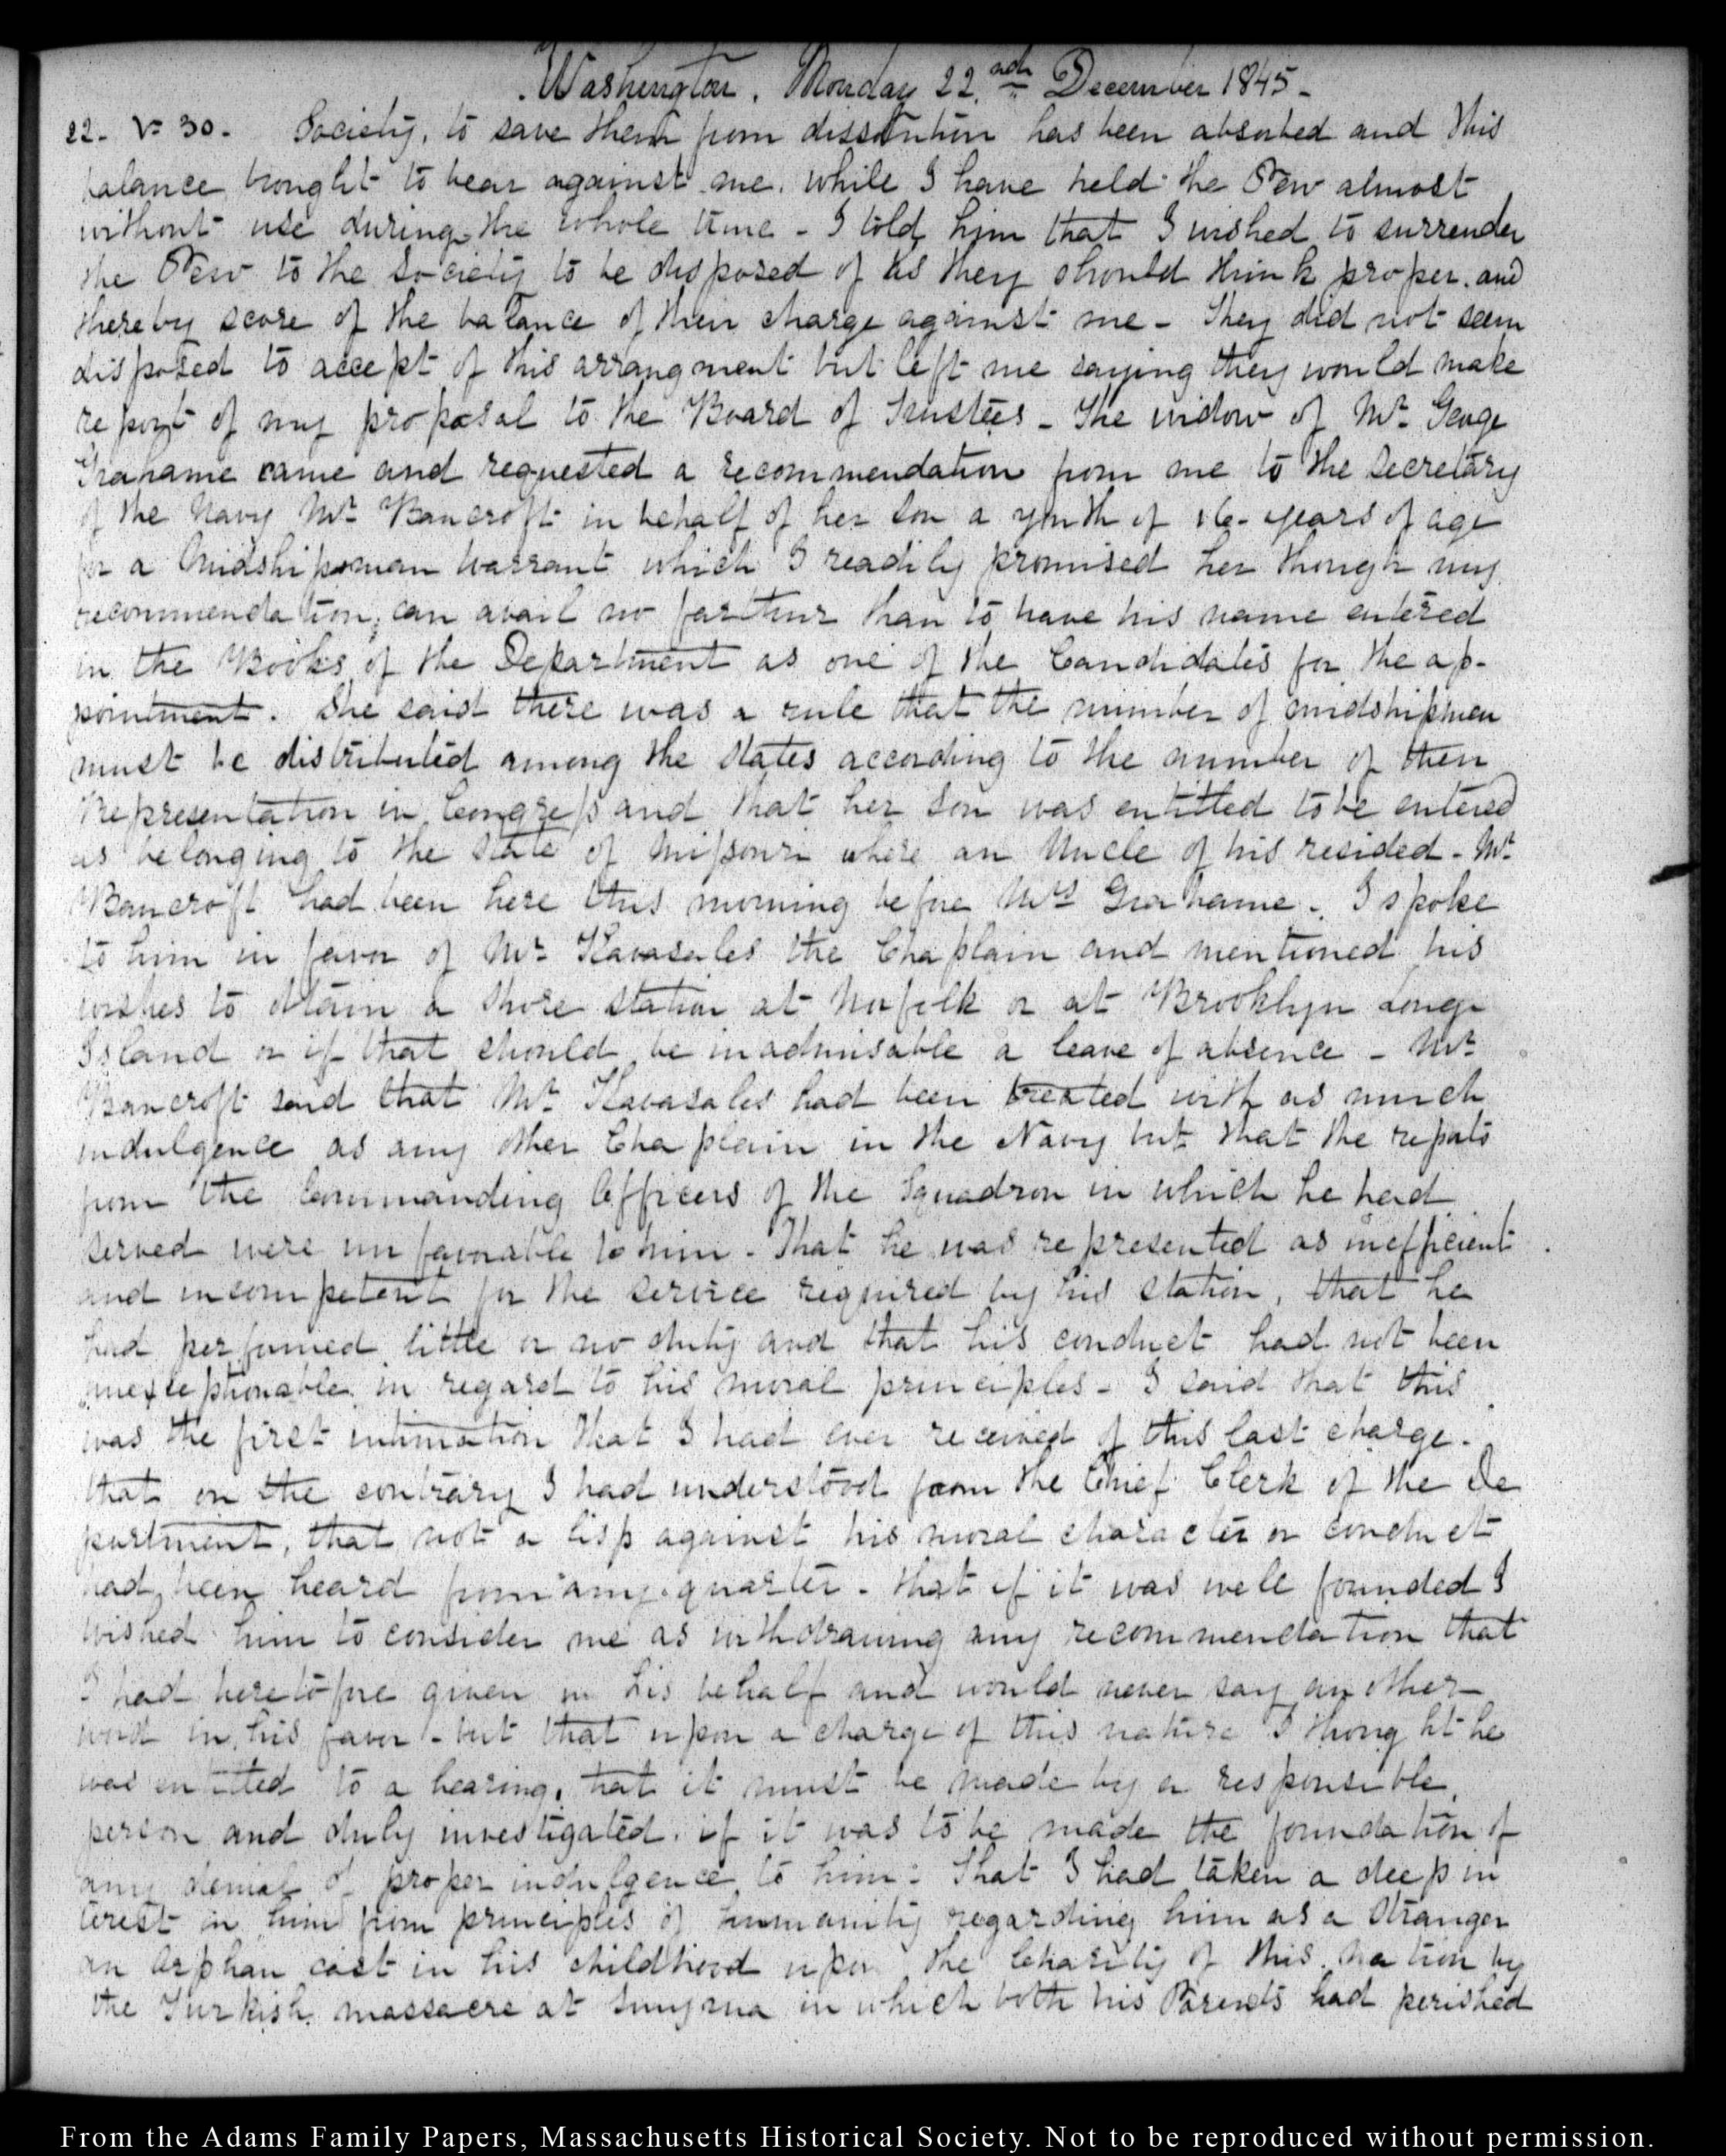 Washington. Monday 22.nd December 1845-
22. V. 30. Society, to save them from dissolution has been absorbed and this
balance brought to bear against me. while I have held the Pew almost
without use during the whole time - I told him that I wished to surrender
the Pew to the Society to be disposed of as they should think proper. and
thereby score of the balance of their charge against me - They did not seem
disposed to accept of this arrangment but left me saying they would make
report of my proposal to the Board of Trustees - The widow of Mr. George
Grahame came and requested a recommendation from me to the Secretary
of the Navy Mr. Bancroft in behalf of her son a youth of 16- years of age
for a Midshipman warrant which I readily promised her though my
recommendation, can avail no farther than to have his name entered
in the Books of the Department as one of the Candidates for the ap-
pointment. She said there was a rule that the number of midshipmen
must be distributed among the States according to the number of their
Representation in Congress and that her son was entitled to be entered
as belonging to the State of Missouri where an Uncle of his resided - Mr.
Bancroft had been here this morning before Mrs Grahame. I spoke
to him in favor of Mr. Kavasales the Chaplain and mentioned his
wishes to obtain a Shore station at Norfolk or at Brooklyn Long
Island or if that should be inadmisable a leave of absence - Mr.
Bancroft said that Mr. Kavasales had been treated with as much
indulgence as any other Chaplain in the Navy but that the reports
from the Commanding Officers of the Squadron in which he had
served were unfavorable to him - That he was represented as inefficient
and incompetent for the service required by his station, that he
had performed little or no duty and that his conduct had not been
unexceptionable in regard to his moral principles - I said that this
was the first intimation that I had ever received of this last charge.
that on the contrary I had understood from the Chief Clerk of the De
partment, that not a lisp against his moral character or conduct
had been heard from any quarter - that if it was well founded I
wished him to consider me as withdrawing any recommendation that
I had heretofore given in his behalf and would never say another
word in his favor - but that upon a charge of this nature I thought he
was entitled to a hearing, that it must be made by a responsible
person and duly investigated. if it was to be made the foundation of
any denial of proper indulgence to him: That I had taken a deep in
terest in him from principles of humanity regarding him as a Stranger
an Orphan cast in his childhood upon the Charity of this nation by
the Turkish massacre at Smyrna in which both his Parents had perished
From the Adams Family Papers, Massachusetts Historical Society. Not to be reproduced without permission.